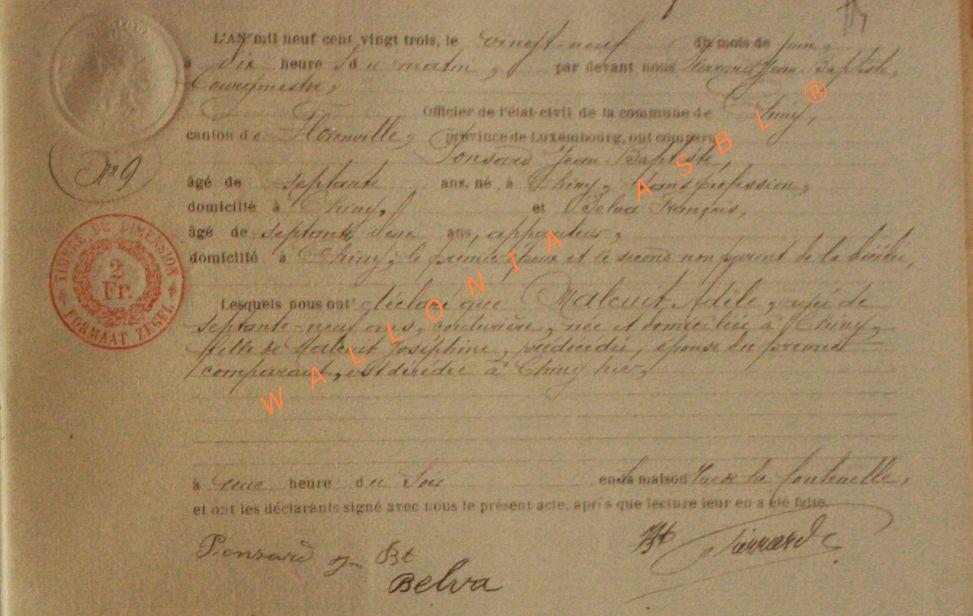 L'AN mil neuf cent vingt trois, le vingt-neuf du mois de juin,
à dix heure s du matin, par devant nous Pierrard Jean Baptiste,
Bourgmestre,
Officier de l'état-civil de la commune de Chiny,
canton de Florenville, province de Luxembourg, ont comparu
Ponsard Jean Baptiste
N° 9
âgé de septante ans, né à Chiny, sans profession,
domicilié à Chiny, et Belva François,
âgé de septante ans, appariteur,
domicilié à Chiny, le premier époux et le second non parent de la décédée,
TIMBRE DE DIMENSION
2
Fr.
FORMAAT ZEGEL
Lesquels nous ont déclaré que Maleuit Adèle, âgée de
septante-neuf ans, couturière, née et domiciliée à Chiny,
fille de Maleuit Joséphine, prédécédée, épouse du premier
comparant, est décédée à Chiny hier,
à une heure du Soir en sa maison rue de la fontenelle,
et ont les déclarants signé avec nous le présent acte, après que lecture leur en a été faite.
Ponsard Jn Bt
Bt Pierrard
Belva
WALLONIA ASBL ®